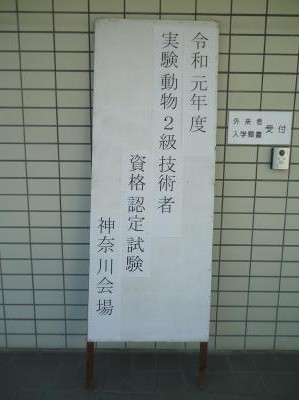 令和元年度
実験動物２級技術者
資格認定試験
神奈川会場
外来者
入学願書
受付